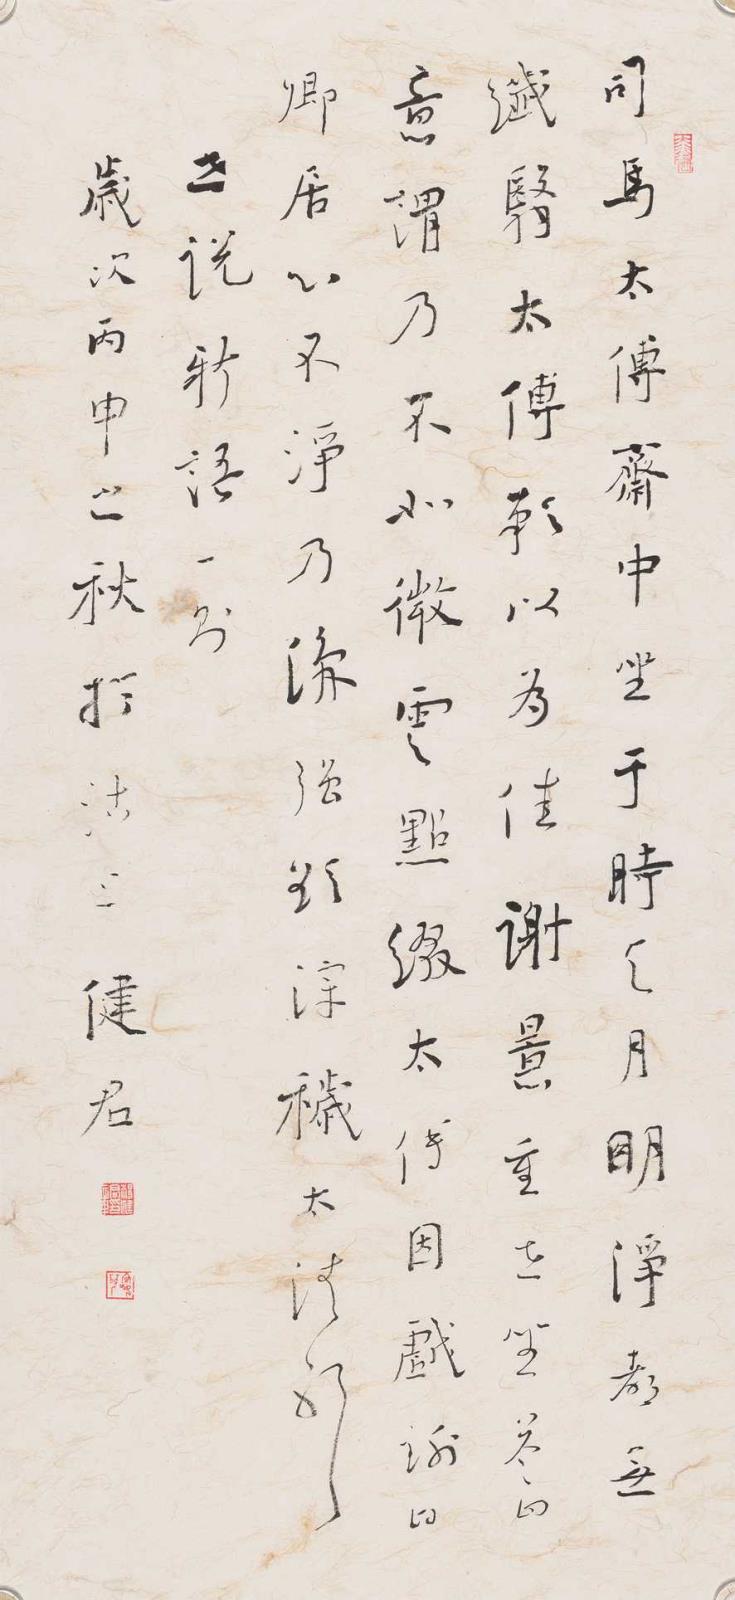 司馬太傅齋中坐于時天月明淨都無
纖翳太傅歎以為佳謝景重在坐答曰
意謂乃不如微雲點綴太傅因戲謝曰
卿居心不淨乃復強欲滓穢太清邪
世說新語一則
歲次丙申之秋於沽上健君